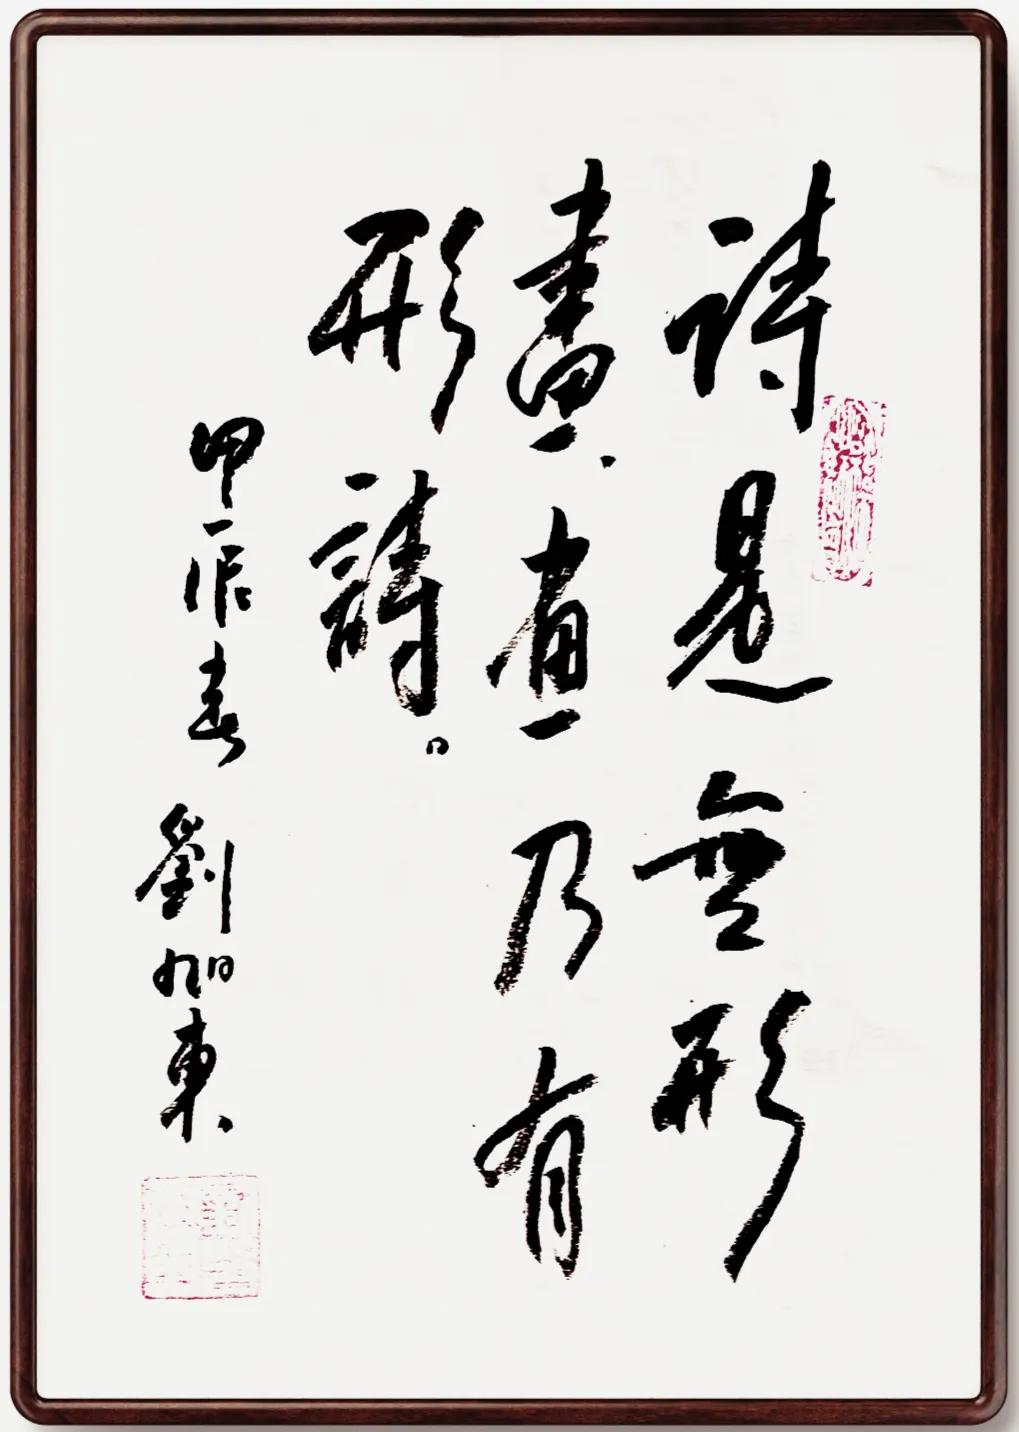 詩是無形
畫、畫乃有
形詩。
甲辰春 劉旭東